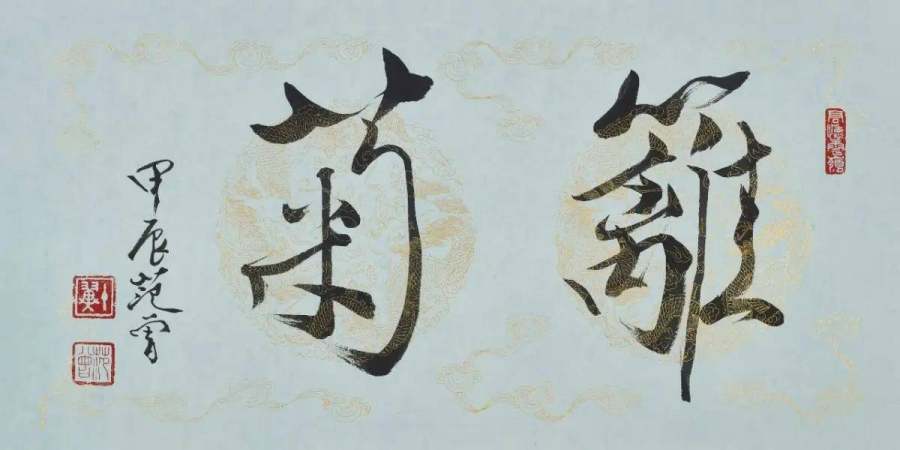 籬菊
甲辰范曾